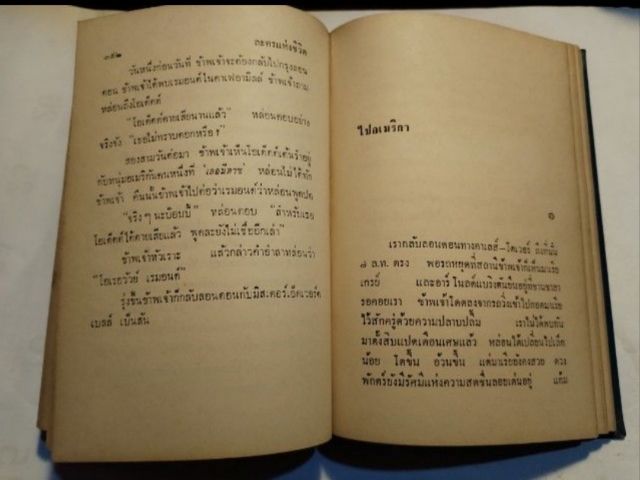 ๓๕๒
ละครแห่งชีวิต
วันหนึ่งก่อนวันที่ ข้าพเจ้าจะต้องกลับไปกรุงลอน
ดอน ข้าพเจ้าได้พบเรมอนด์ในคาเฟอามิลล์ ข้าพเจ้าถาม
หล่อนถึงโอเด็ตต์
"โอเด็ตต์ตายเสียนานแล้ว" หล่อนตอบอย่าง
จริงจัง "เธอไม่ทราบดอกหรือ?"
สองสามวันต่อมา ข้าพเจ้าเห็นโอเด็ตต์เต้นรำอยู่
กับหนุ่มอเมริกันคนหนึ่งที่ หล่อนไม่ได้ทัก
ข้าพเจ้า คืนนั้นข้าพเจ้าไปต่อว่าเรมอนด์ว่าหล่อนพูดปด
"จริง ๆ นะบ๊อบบี้" หล่อนตอบ "สำหรับเธอ
โอเด็ตต์ได้ตายเสียแล้ว พูดละยังไม่เชื่ออีกเล่า"
ข้าพเจ้าหัวเราะ แล้วกล่าวคำอำลาหล่อนว่า
"โอเรวัวย์ เรมอนด์"
รุ่งขึ้นข้าพเจ้าก็กลับลอนดอนกับมิสเตอร์เอ็ดเวอร์ด
เบลล์ เบ็นสัน
ไปอเมริกา
๑
เรากลับลอนดอนทางคาเลส์—โดเวอร์ ถึงที่นั่น
๘ ล.ท. ตรง พอรถหยุดที่สถานีข้าพเจ้าก็เห็นมาเรีย
เกรย์ และอาร์โนลด์แบริงตันยืนอยู่ที่ชานชาลา
รอคอยเรา ข้าพเจ้าโดดลงจากรถวิ่งเข้าไปกอดมาเรีย
ไว้สักครู่ด้วยความปลาบปลื้ม เราไม่ได้พบกัน
มาตั้งสิบแปดเดือนเศษแล้ว หล่อนได้เปลี่ยนไปเล็ก
น้อย โตขึ้น อ้วนขึ้น แต่มาเรียยังคงสวย ดวง
พักตร์ยังมีรัศมีแห่งความสดชื่นลอยเด่นอยู่ แก้ม